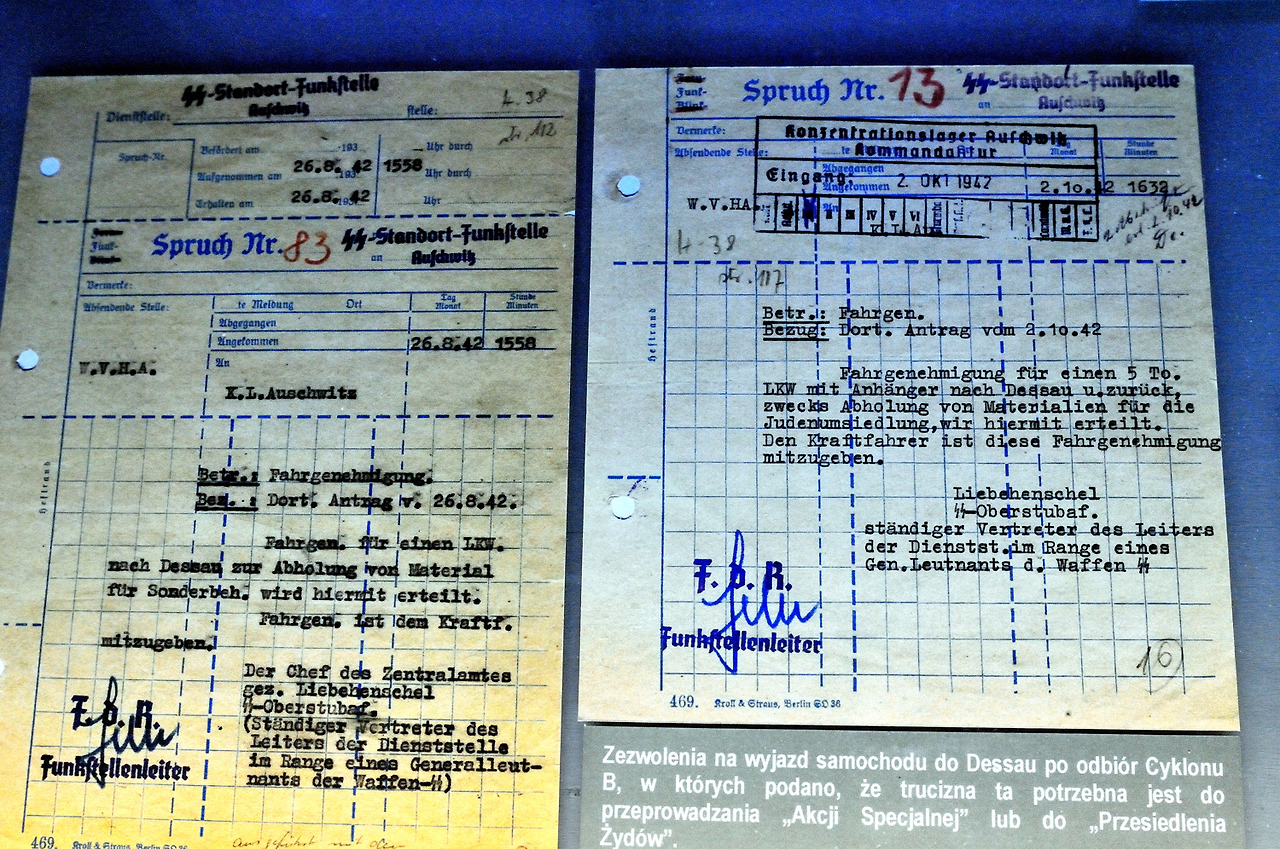 ᛋᛋ-Standort-Funkstelle
Auschwitz
Dienststelle: stelle:
4.38
Str. 112
Spruch-Nr.
Befördert am 193 Uhr durch
Aufgenommen am 26.8.42 193 1558 Uhr durch
Erhalten am 26.8.42 193 Uhr
Funk-
Spruch Nr. 83 ᛋᛋ-Standort-Funkstelle
an Auschwitz
Vermerke:
Absendende Stelle: te Meldung Ort Tag Monat Stunde Minuten
Abgegangen
Angekommen 26.8.42 1558
W.V.H.A. An
K.L.Auschwitz
Heftrand
Betr.: Fahrgenehmigung.
Bez. : Dort. Antrag v. 26.8.42.
Fahrgen. für einen LKW.
nach Dessau zur Abholung von Material
für Sonderbeh. wird hiermit erteilt.
Fahrgen. ist dem Kraftf.
mitzugeben.
Der Chef des Zentralamtes
gez. Liebehenschel
ᛋᛋ-Oberstubaf.
(Ständiger Vertreter des
Leiters der Dienststelle
im Range eines Generalleut-
nants der Waffen-ᛋᛋ)
F. d. R.
Funkstellenleiter
469. Kroll & Straus, Berlin SO 36
Funk-
Spruch Nr. 13 ᛋᛋ-Standort-Funkstelle
an Auschwitz
Vermerke:
Konzentrationslager Auschwitz
Kommandantur
Absendende Stelle: te Tag Monat Stunde Minuten
Abgegangen
Eingang: 2. OKT 1942
Angekommen 2.10.42 1632
W.V.HA. An
III IV V VI
4-38
Str. 117
Heftrand
Betr.: Fahrgen.
Bezug: Dort. Antrag vom 2.10.42
Fahrgenehmigung für einen 5 To.
LKW mit Anhänger nach Dessau u.zurück,
zwecks Abholung von Materialien für die
Judenumsiedlung,wir hiermit erteilt.
Den Kraftfahrer ist diese Fahrgenehmigung
mitzugeben.
Liebehenschel
ᛋᛋ-Oberstubaf.
ständiger Vertreter des Leiters
der Dienstst.im Range eines
Gen.Leutnants d. Waffen ᛋᛋ
F. d. R.
Funkstellenleiter
16
469. Kroll & Straus, Berlin SO 36
Zezwolenia na wyjazd samochodu do Dessau po odbiór Cyklonu
B, w których podano, że trucizna ta potrzebna jest do
przeprowadzania „Akcji Specjalnej” lub do „Przesiedlenia
Żydów”.